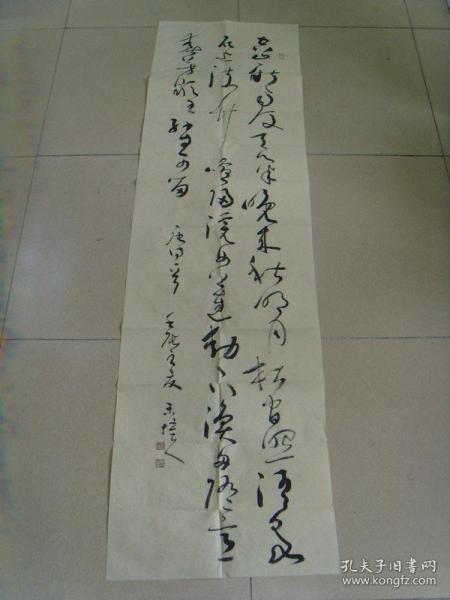 空山新雨后天气晚来秋明月松间照清泉
石上流竹喧归浣女莲动下渔舟随意
春芳歇王孙自可留 唐诗一首 壬辰
孔夫子旧书网
www.kongfz.com